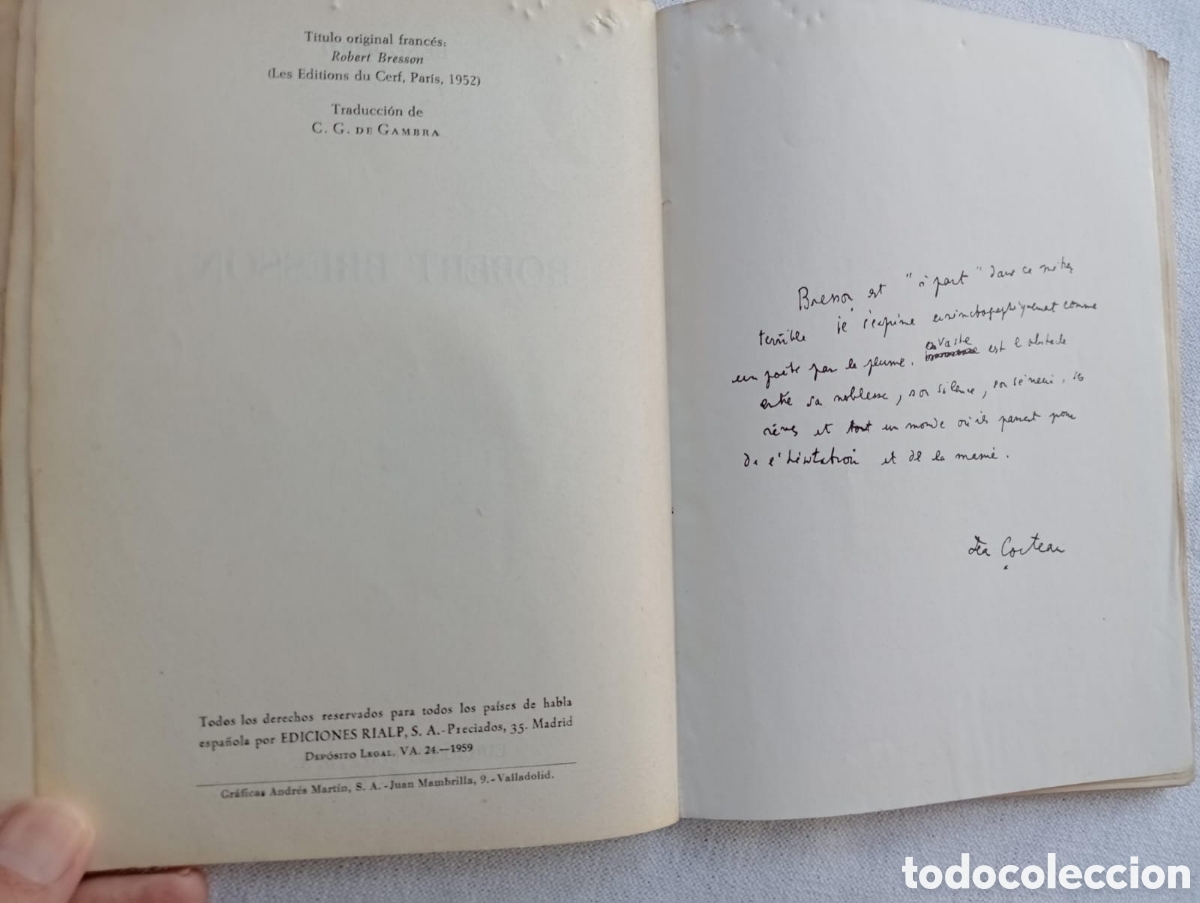 Título original francés:
Robert Bresson
(Les Editions du Cerf, París, 1952)
Traducción de
C. G. DE GAMBRA
ROBERT BRESSON
Todos los derechos reservados para todos los países de habla
española por EDICIONES RIALP, S. A.-Preciados, 35.-Madrid
DEPÓSITO LEGAL, VA. 24.—1959
Gráficas Andrés Martín, S. A.-Juan Mambrilla, 9.-Valladolid.
Bresson est "à part" dans ce métier
terrible s'exprime cinématographiquement comme
un poète par la plume. vaste est l'obstacle
entre sa noblesse, son silence, son sérieux, ses
rêves et tout un monde où ils passent pour
de l'hésitation et de la manie.
Jean Cocteau
todocoleccion.net